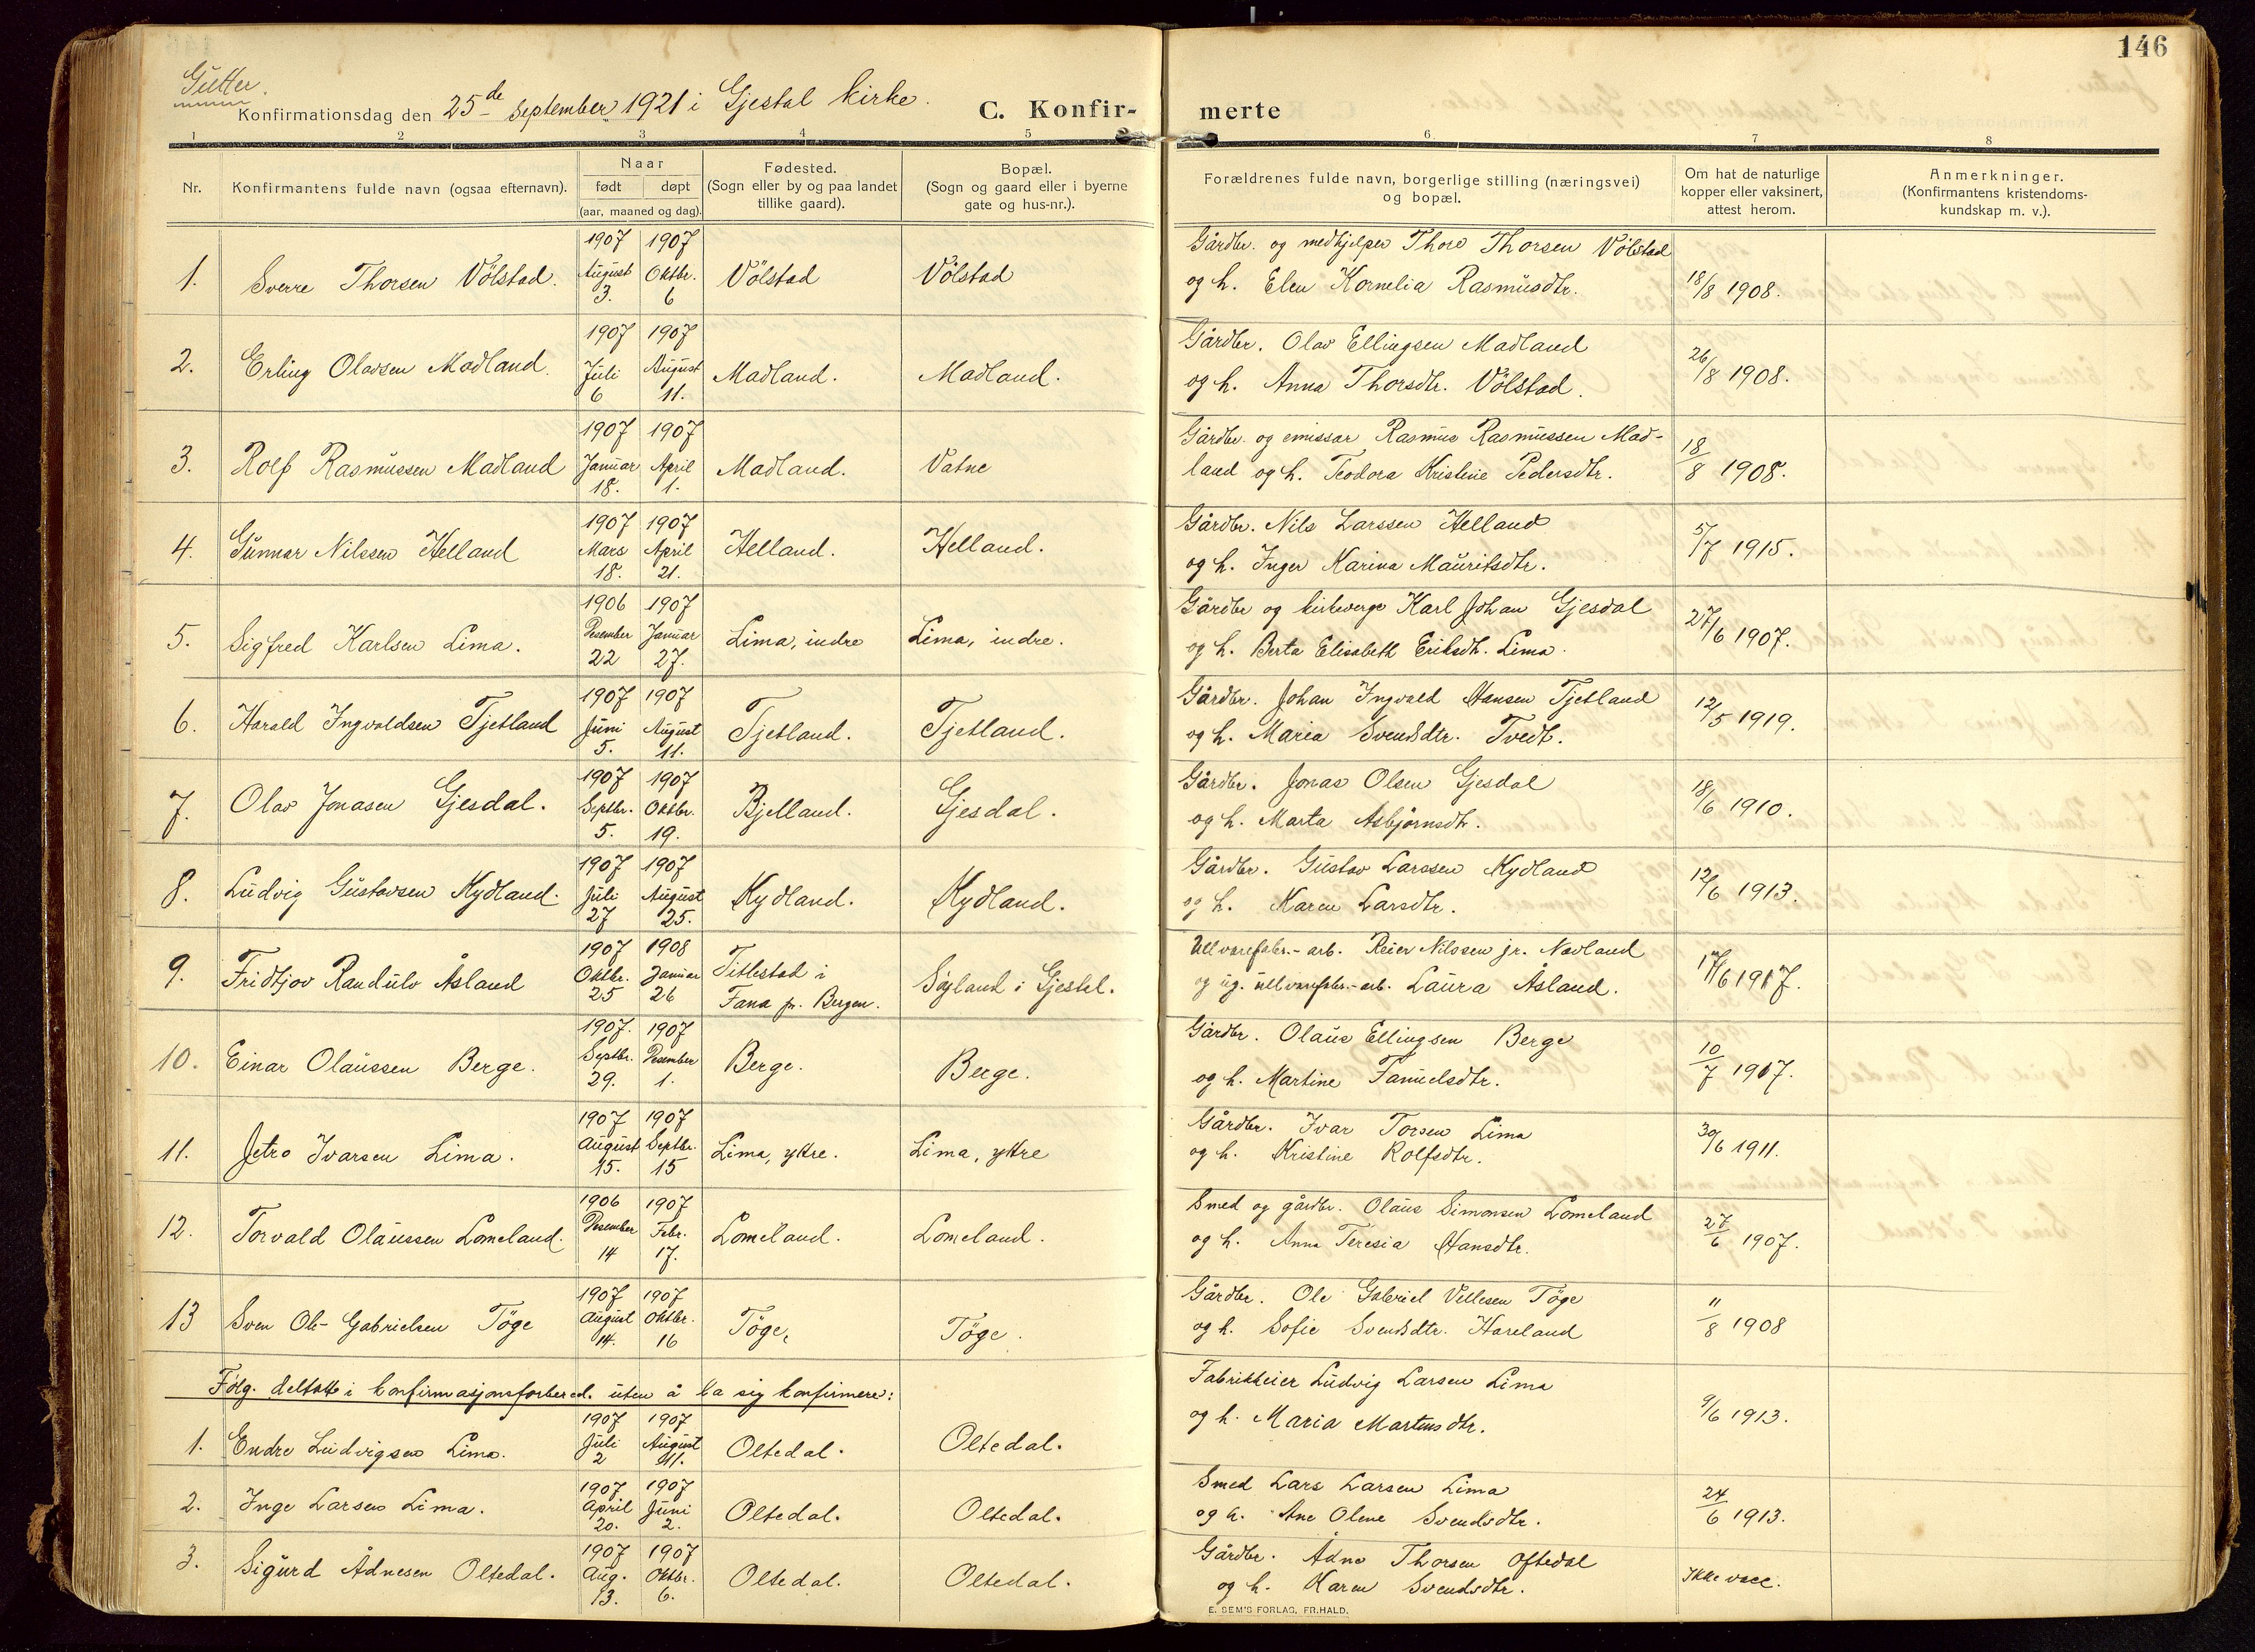 146
Gutter.
Konfirmationsdag den 25de September 1921 i Gjestal kirke.
C. Konfir-
merte
1 2 3 4 5 6 7 8
Nr.
Konfirmantens fulde navn (ogsaa efternavn).
Naar
født
døpt
(aar, maaned og dag).
Fødested.
(Sogn eller by og paa landet
tillike gaard).
Bopæl.
(Sogn og gaard eller i byerne
gate og hus-nr.).
Forældrenes fulde navn, borgerlige stilling (næringsvei)
og bopæl.
Om hat de naturlige
kopper eller vaksinert,
attest herom.
Anmerkninger.
(Konfirmantens kristendoms-
kundskap m. v.).
1. Sverre Thorsen Völstad. 1907 August 3. 1907 Oktbr. 6 Völstad Völstad
Gårdbr. og medhjelper Thore Thorsen Völstad
og h. Elen Kornelia Rasmusdtr. 18/8 1908.
2. Erling Olavsen Madland. 1907 Juli 6 1907 August 11. Madland. Madland.
Gårdbr. Olav Ellingsen Madland
og h. Anna Thorsdtr. Völstad. 26/8 1908.
3. Rolf Rasmussen Madland 1907 Januar 18. 1907 April 1. Madland. Vatne
Gårdbr. og emissær Rasmus Rasmussen Mad-
land og h. Teodora Kristine Pedersdtr. 18/8 1908.
4. Gunnar Nilssen Helland 1907 Mars 18. 1907 April 21. Helland. Helland.
Gårdbr. Nils Larssen Helland
og h. Inger Karina Mauritsdtr. 5/7 1915.
5. Sigfred Karlsen Lima. 1906 Desember 22 1907 Januar 27. Lima, indre Lima, indre.
Gårdbr og kirkeverge Karl Johan Gjesdal
og h. Berta Elisabeth Eriksdt. Lima. 27/6 1907.
6. Harald Ingvaldsen Tjetland 1907 Juni 5. 1907 August 11. Tjetland. Tjetland.
Gårdbr. Johan Ingvald Hansen Tjetland
og h. Maria Svendsdtr. Tvedt. 12/5 1919.
7. Olav Jonasen Gjesdal. 1907 Septbr. 5. 1907 Oktbr. 19. Bjelland. Gjesdal.
Gårdbr. Jonas Olsen Gjesdal
og h. Marta Asbjørnsdt. 18/6 1910.
8. Ludvig Gustavsen Kydland. 1907 Juli 27 1907 August 25. Kydland. Kydland.
Gårdbr. Gustav Larssen Kydland
og h. Karen Larsdtr. 12/6 1913.
9. Fridtjov Randulv Åsland 1907 Oktbr. 25 1908 Januar 26 Titlestad i
Fana pr. Bergen. Søyland i Gjestal.
Ullvarefabr.-arb. Reier Nilssen jr. Navland
og ug. ullvarefabr.-arb. Laura Åsland. 17/6 1917.
10. Einar Olaussen Berge. 1907. Septbr. 29. 1907 Desember 1. Berge. Berge.
Gårdbr. Olaus Ellingsen Berge
og h. Martine Tanuelsdtr. 10/7 1917.
11. Jetro Ivarsen Lima. 1907 August 15. 1907 Septbr. 15 Lima, ytre. Lima, ytre
Gårdbr. Ivar Torsen Lima
og h. Kristine Rolfsdtr. 30/6 1911.
12. Torvald Olaussen Lomeland. 1906 Desember 14 1907 Febr. 17. Lomeland. Lomeland.
Smed og gårdbr. Olaus Simonsen Lomeland
og h. Anna Teresia Hansdtr. 27/6 1907.
13 Sven Ole Gabrielsen Töge 1907 August 14. 1907 Oktbr. 16 Töge, Töge.
Gårdbr. Ole Gabriel Vellesen Töge
og h. Sofie Svendsdtr. Haveland 11/8 1908
Følg. deltatt i konfirmasjonsforbered. uten å la sig konfirmere:
1. Endre Ludvigsen Lima. 1907 Juli 2 1907 August 11. Oltedal. Oltedal.
Fabrikkeier Ludvig Larsen Lima
og h. Maria Martinsdtr. 9/6 1913.
2. Inge Larsen Lima. 1907 April 20. 1907 Juni 2. Oltedal. Oltedal.
Smed Lars Larsen Lima
og h. Ane Olene Svendsdtr. 24/6 1913.
3. Sigurd Ådnesen Oltedal. 1907 Aug. 13. 1907 Oktbr. 6. Oltedal. Oltedal.
Gårdbr. Ådne Thorsen Oftedal
og h. Karen Svendsdtr. Ikke vacc.
E. SEM'S FORLAG, FR.HALD.